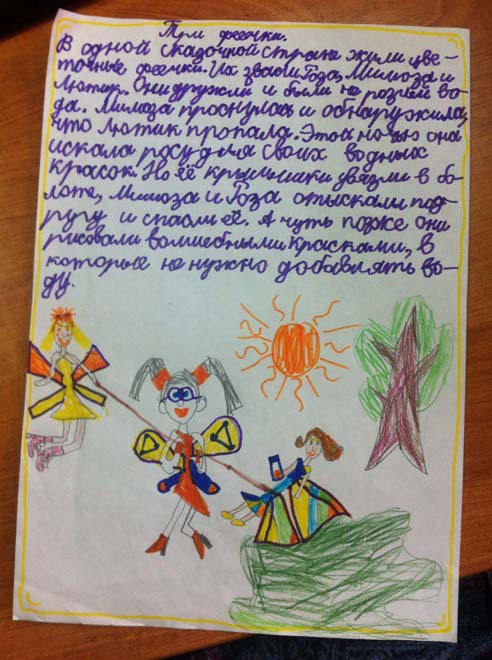 Три феечки.
В одной сказочной стране жили цве-
точные феечки. Их звали Роза, Мимоза и
Лютик. Они дружили и были не розлей во-
да. Мимоза проснулась и обнаружила,
что Лютик пропала. Этой ночью она
искала росу для своих водных
красок. Но её крылышки увязли в бо-
лоте, Мимоза и Роза отыскали под-
ругу и спасли её. А чуть позже они
рисовали волшебными красками, в
которые не нужно добавлять во-
ду.